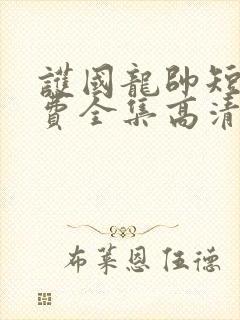 護國龍帥短
費全集高清
布萊恩伍德